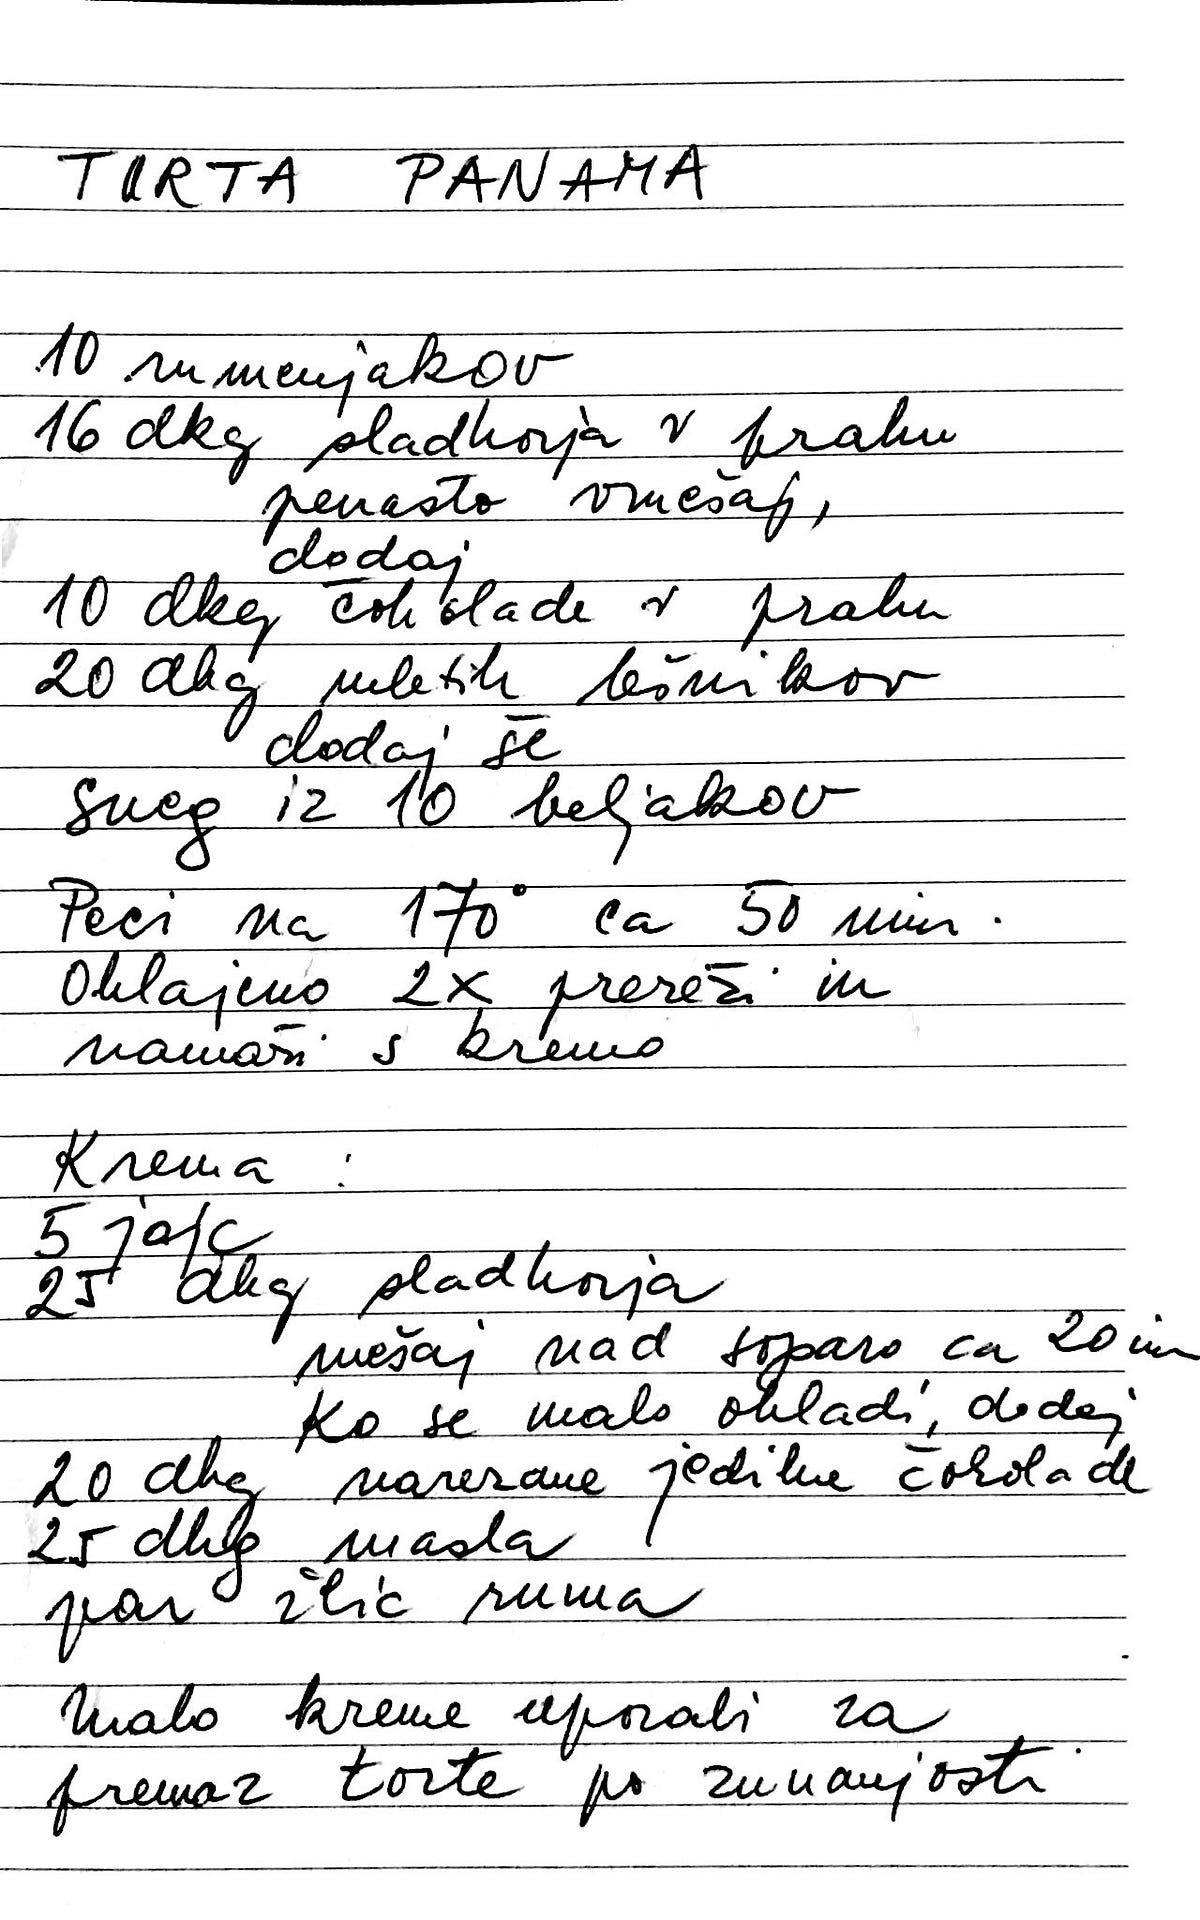 TORTA PANAMA
10 rumenjakov
16 dkg sladkorja v prahu
penasto vmešaj,
dodaj
10 dkg čokolade v prahu
20 dkg mletih lešnikov
dodaj še
sneg iz 10 beljakov
Peci na 170° ca 50 min.
Ohlajeno 2x prereži in
namaži s kremo
Krema :
5 jajc
25 dkg sladkorja
mešaj nad soparo ca 20 im
Ko se malo ohladi, dodaj
20 dkg narezane jedilne čokolade
25 dkg masla
par žlic ruma
Malo kreme uporabi za
premaz torte po zunanjosti